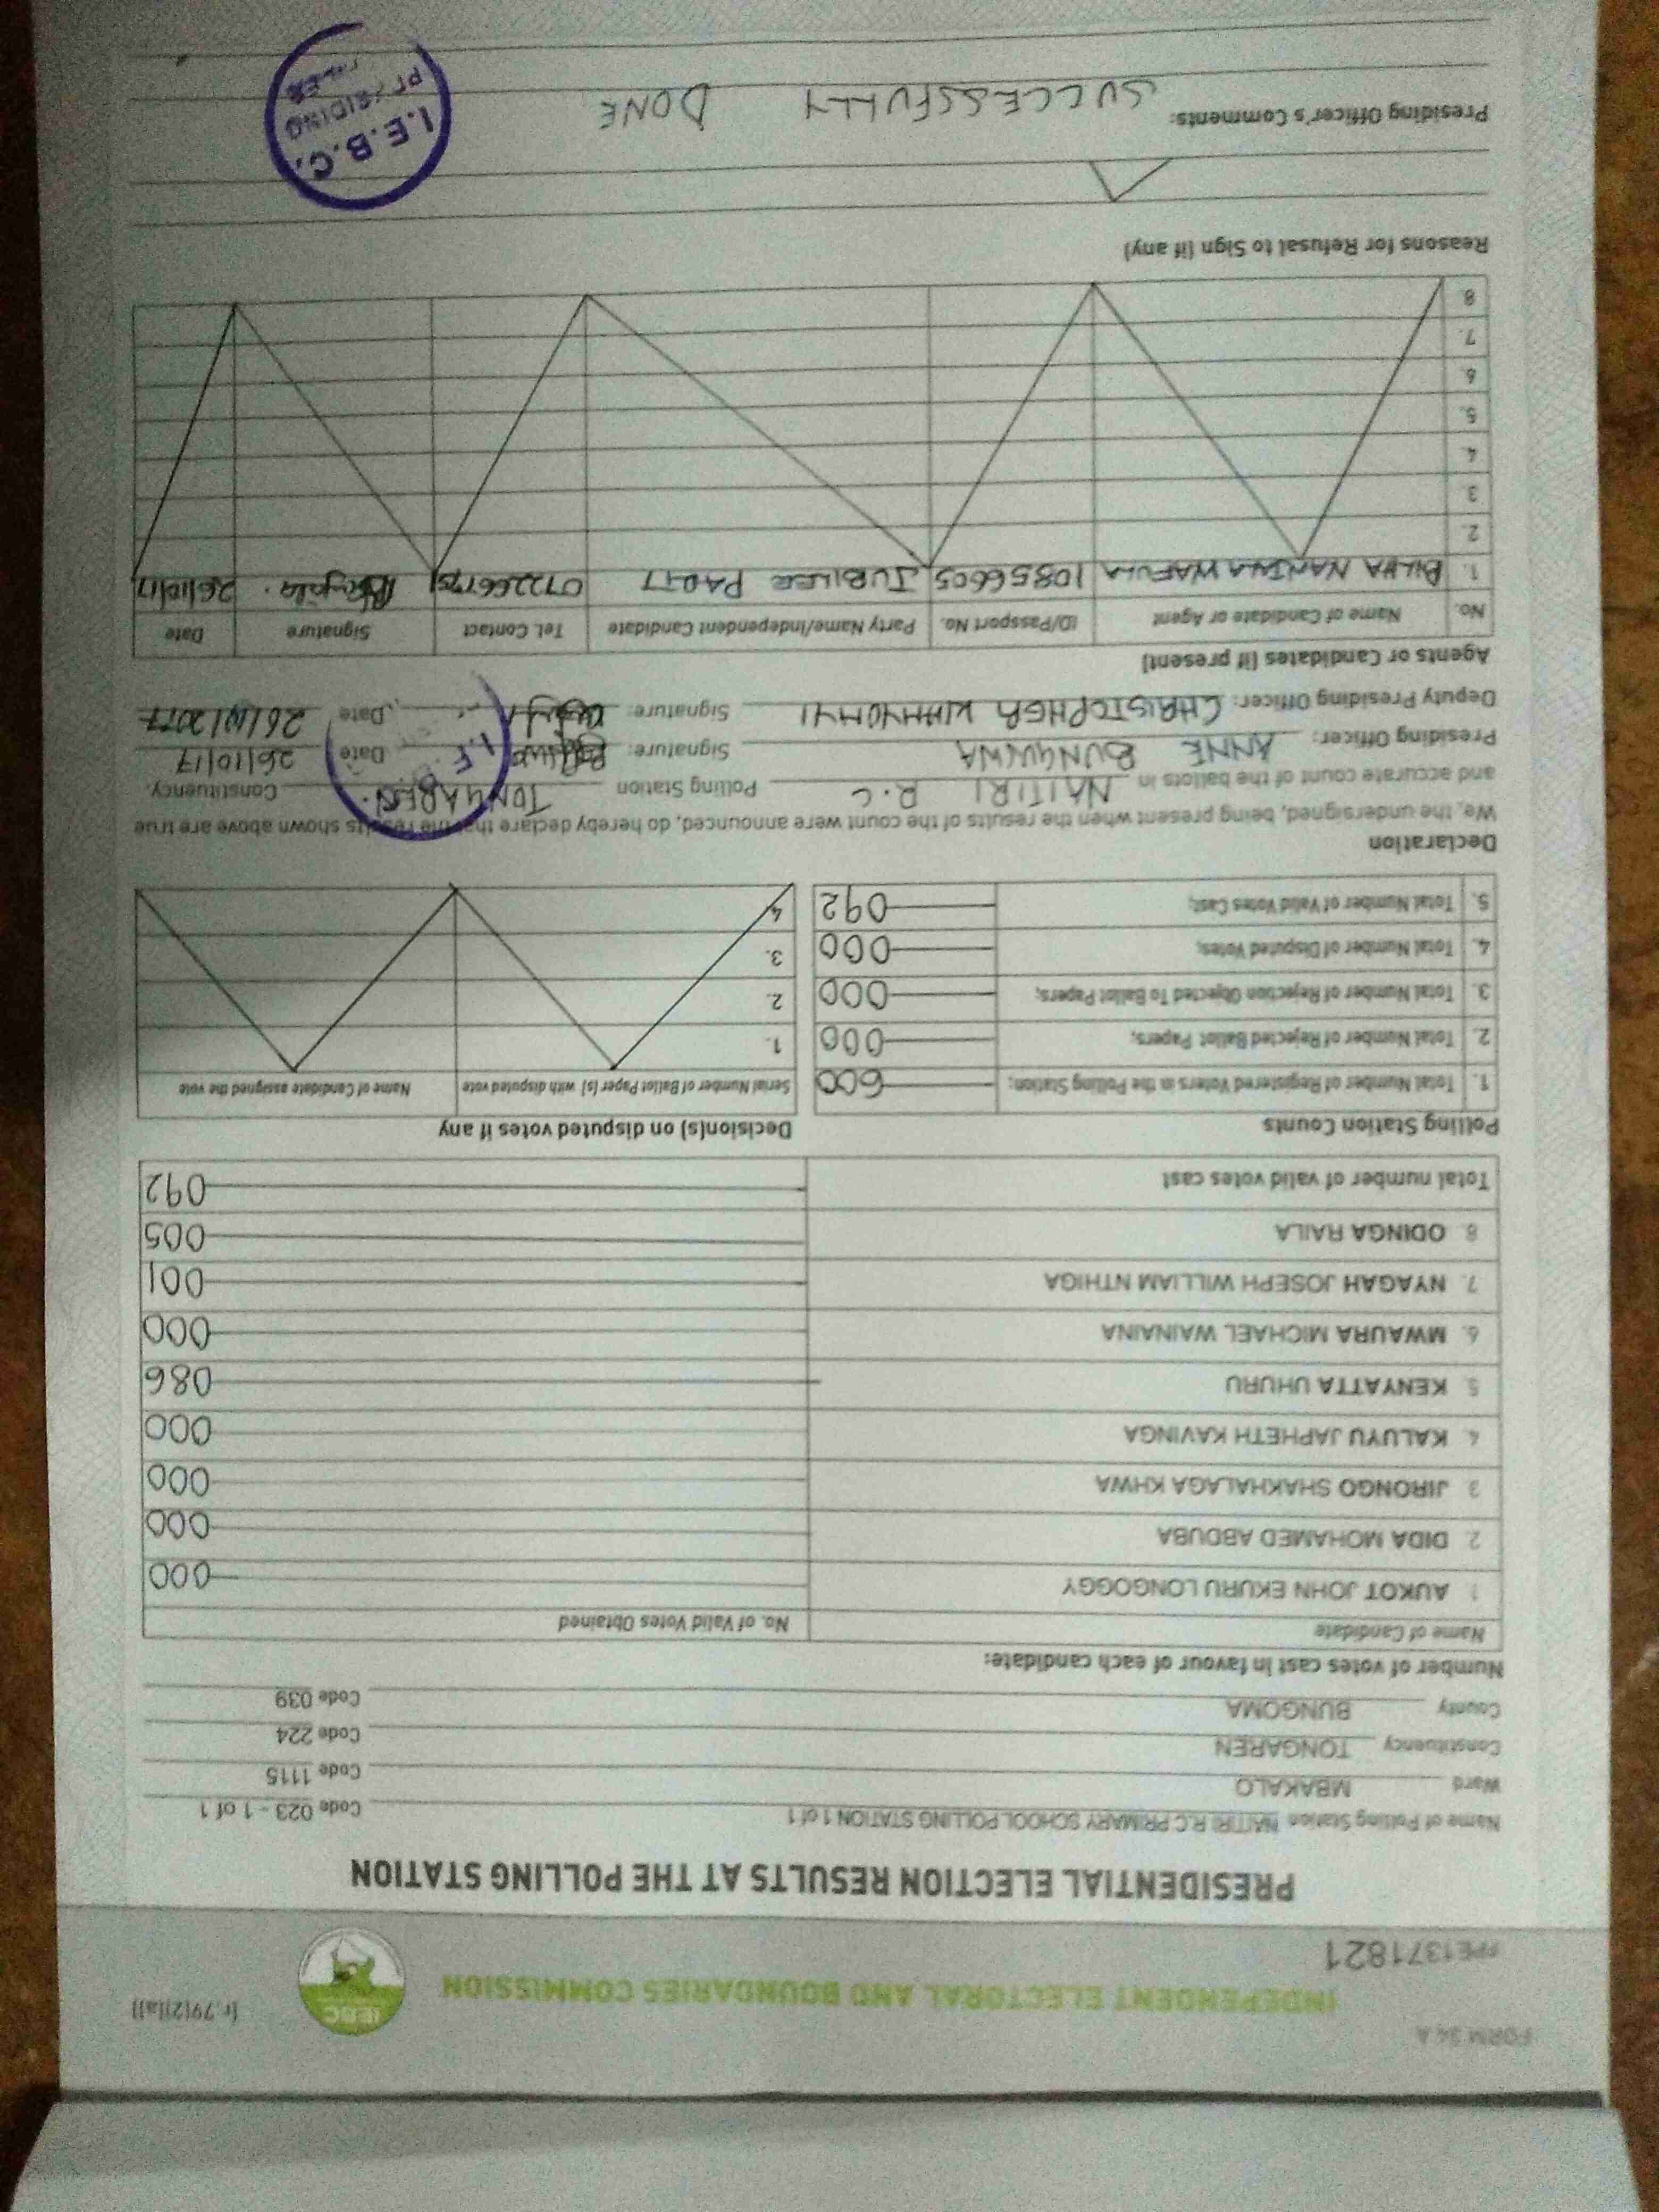 FORM 34 A
[r.79(2)(a)]
INDEPENDENT ELECTORAL AND BOUNDARIES COMMISSION
IEBC
PPE1371821
PRESIDENTIAL ELECTION RESULTS AT THE POLLING STATION
Name of Polling Station NAITIRI R.C PRIMARY SCHOOL POLLING STATION 1 of 1 Code 023 - 1 of 1
Ward MBAKALO Code 1115
Constituency TONGAREN Code 224
County BUNGOMA Code 039
Number of votes cast in favour of each candidate:
Name of Candidate No. of Valid Votes Obtained
1 AUKOT JOHN EKURU LONGOGGY 000
2 DIDA MOHAMED ABDUBA 000
3 JIRONGO SHAKHALAGA KHWA 000
4. KALUYU JAPHETH KAVINGA 000
5 KENYATTA UHURU 086
6. MWAURA MICHAEL WAINAINA 000
7. NYAGAH JOSEPH WILLIAM NTHIGA 001
8 ODINGA RAILA 005
Total number of valid votes cast 092
Polling Station Counts
1. Total Number of Registered Voters in the Polling Station; 600
2. Total Number of Rejected Ballot Papers; 000
3. Total Number of Rejection Objected To Ballot Papers; 000
4. Total Number of Disputed Votes; 000
5. Total Number of Valid Votes Cast; 092
Decision(s) on disputed votes if any
Serial Number of Ballot Paper (s) with disputed vote Name of Candidate assigned the vote
1.
2.
3.
4.
Declaration
We, the undersigned, being present when the results of the count were announced, do hereby declare that the results shown above are true
and accurate count of the ballots in NAITIRI R.C Polling Station TONGAREN Constituency.
Presiding Officer: ANNE BUNGUSWA Signature: Date 26/10/17
Deputy Presiding Officer: CHRISTOPHER Signature: Date 26/10/2017
I.E.B.
Agents or Candidates (if present)
No. Name of Candidate or Agent ID/Passport No. Party Name/Independent Candidate Tel. Contact Signature Date
1. WAFULA 10856605 JUBILEE PARTY 26/10/17
2
3
4.
5.
6.
7.
8
Reasons for Refusal to Sign (if any)
Presiding Officer's Comments: SUCCESSFULLY DONE
I.E.B.C.
PRESIDING